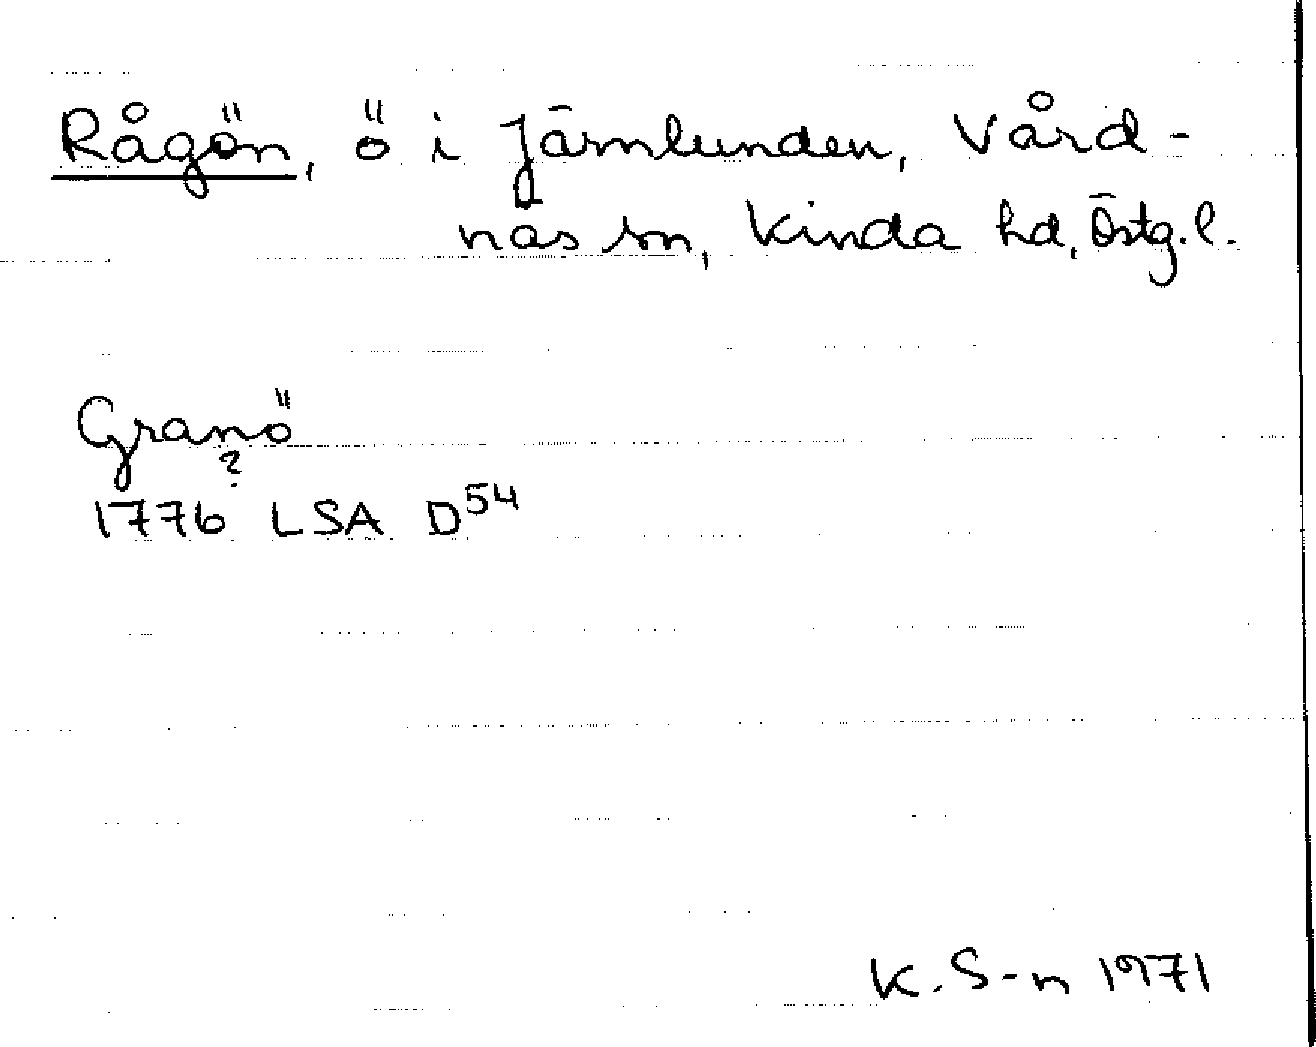 Rågön, ö i Järnlunden, Vård-
näs sn, Kinda hd, Östg.l.
Granö
?
1776 LSA D54
K. S-n 1971